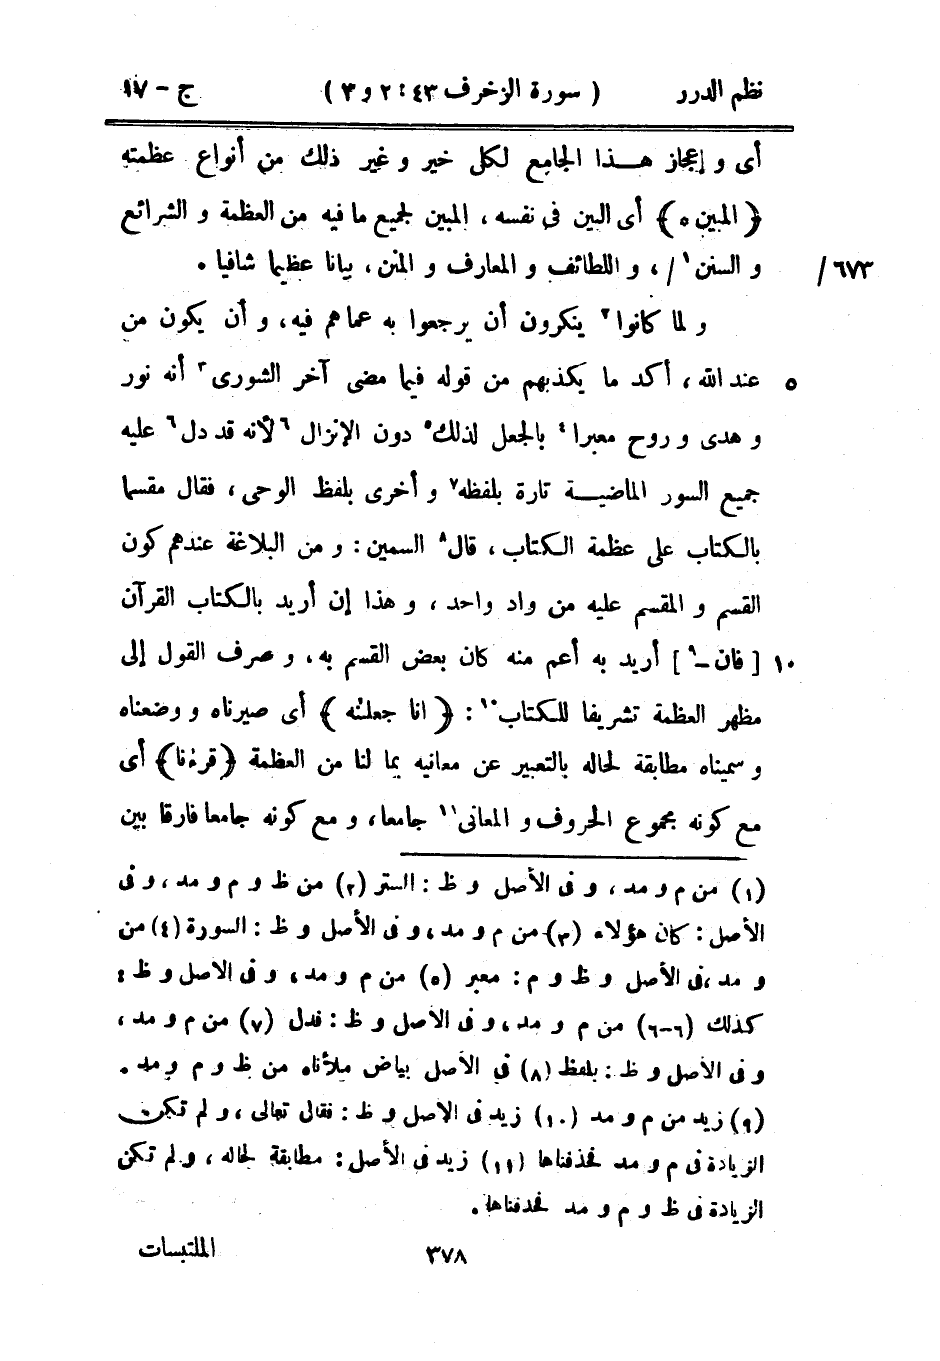 نظم الدرر ( سورة الزخرف ٤٣ : ٢ و ٣ ) ج – ١٧
أى و إعجاز هـذا الجامع لكل خير و غير ذلك من أنواع عظمته
﴿ المبين ه ﴾ أى البين فى نفسه ، المبين لجميع ما فيه من العظمة و الشرائع
و السنن١ / ، و اللطائف و المعارف و المنن ، بيانا عظيما شافيا . / ٦٧٣
و لما كانوا٢ ينكرون أن يرجعوا به عماهم فيه ، و أن يكون من
عند الله ، أكد ما يكذبهم من قوله فيما مضى آخر الشورى٣ أنه نور ٥
و هدى و روح معبرا٤ بالجعل لذلك٥ دون الإنزال ٦لأنه قد دل٦ عليه
جميع السور الماضيـة تارة بلفظه٧ و أخرى بلفظ الوحى ، فقال مقسما
بالكتاب على عظمة الكتاب ، قال٨ السمين : و من البلاغة عندهم كون
القسم و المقسم عليه من واد واحد ، و هذا إن أريد بالكتاب القرآن
[ فان –٩ ] أريد به أعم منه كان بعض القسم به ، و صرف القول إلى ١٠
مظهر العظمة تشريفا للكتاب١٠ : ﴿ انا جعلنٰه ﴾ أى صيرناه و وضعناه
و سميناه مطابقة لحاله بالتعبير عن معانيه بما لنا من العظمة ﴿ قرءٰنا ﴾ أى
مع كونه مجموع الحروف و المعانى١١ جامعا ، و مع كونه جامعا فارقا بين
(١) من م و مد ، و فى الأصل و ظ : الستر (٢) من ظ و م و مد ، و فى
الأصل : كان هؤلاء (٣) من م و مد ، و فى الأصل و ظ : السورة (٤) من
و مد ، فى الأصل و ظ و م : معبر (٥) من م و مد ، و فى الاصل و ظ :
كذلك (٦-٦) من م و مد ، و فى الأصل و ظ : فدل (٧) من م و مد ،
و فى الأصل و ظ : بلفظ (٨) فى الأصل بياض ملأناه من ظ و م و مد .
(٩) زيد من م و مد (١٠) زيد فى الأصل و ظ : فقال تعالى ، و لم تكن
الزيادة فى م و مد فحذفناها (١١) زيد فى الأصل : مطابقة لحاله ، و لم تكن
الزيادة فى ظ و م و مد فحذفناها .
٣٧٨ الملتبسات